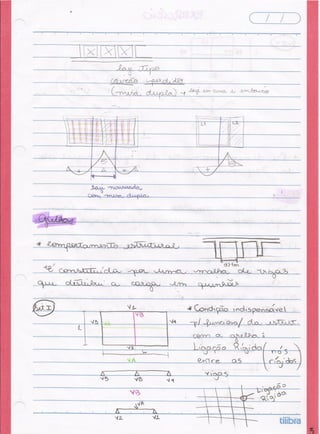 Laje Tipo
caixão perdido
(mesa dupla) → laje em cima e embaixo
L1 L2
Laje nervurada
com mesa dupla.
Grelhas
* Comportamento estrutural
É constituída por uma malha de vigas
que distribui a carga em quinhões
* Condição indispensável
p/ funciona/ da estrut.
com a grelha:
Ligação Rígida (nós
entre as rígidos)
vigas
V1
V3 VB V4
l
VA
V2
L
VA
V3 VB V4
VB
VA
V2 V1
Ligação
Rígida
tilibra